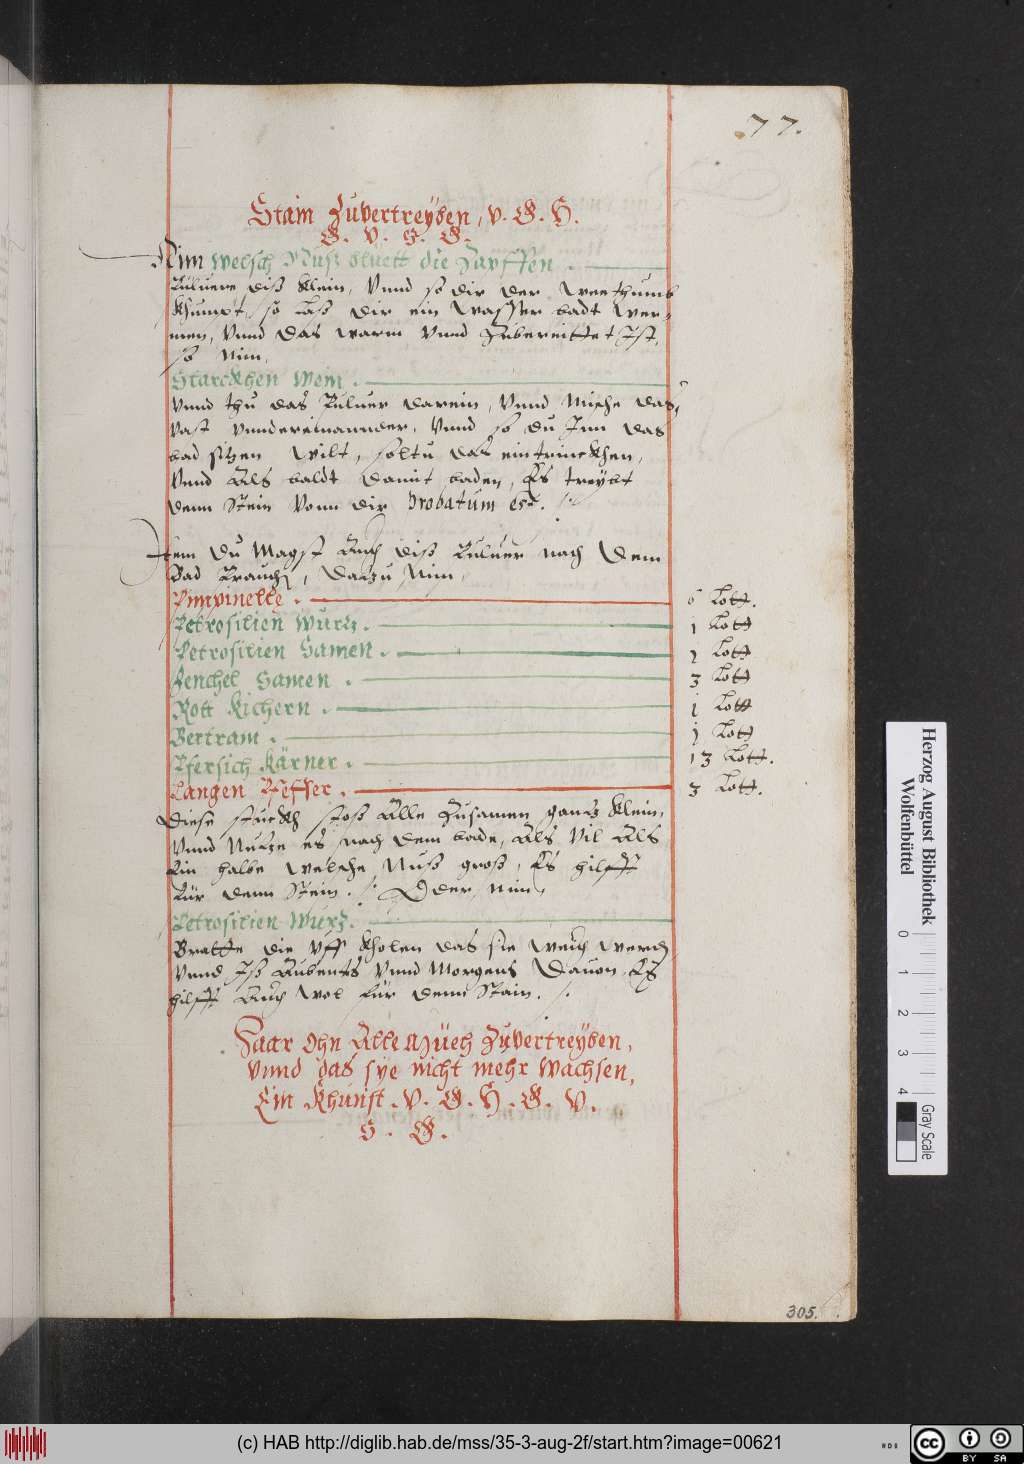 77.
Stain Zuvertreyben, v. G. H.
G. v. H. G.
Nim Welsch Nuß bluett die Zapffen.
Puluere diß klein, Vnnd so dir der Weethumb
Khumbt, so laß dir ein Wasser badt wer-
men, Vnnd das warm Vnnd Zubereittet Ist,
so Nim,
Starckhen Wein.
Vnnd thu das Puluer darein, Vnnd Mische das,
Vast Vndereinannder, Vnnd so du Inn das
bad sitzen wilt, soltu das eintrinckhen,
Vnnd Als baldt damit baden, Es treybt
denn Stein Vonn dir probatum est.
Item du Magst Auch diß Puluer nach dem
Bad Brauch, Darzu Nim,
Pimpinelle. 6 Lott.
Petrosilien Wurtz. 1 Lott
Petrosilien Samen. 2 Lott
Fenchel Samen. 3 Lott
Rott Kichern. 1 Lott
Bertram. 1 Lott
Pfersich Kärner. 13 Lott.
Langen Pfeffer. 3 Lott.
Diese stuckh stoß Alle Zusamen gantz klein,
Vnnd Nutze es nach dem bade, Als Vil Als
Ein halbe Welsche Nuß groß, Es hilfft
Für denn Stein. Oder Nim,
Petrosilien Wurtz.
Bratte die Vff Kholen das sie Weich Werd
Vnnd Iß Aubents Vnnd Morgens Dauon, Es
hilfft Auch Wol für denn Stain.
Haar Ohn Alle Müeh Zuvertreyben,
Vnnd das sye nicht mehr Wachsen,
Ein Khunst. v. G. H. G. V.
H. G.
305.
Herzog August Bibliothek
Wolfenbüttel
0 1 2 3 4 Gray Scale
(c) HAB http://diglib.hab.de/mss/35-3-aug-2f/start.htm?image=00621
HDB
cc BY SA